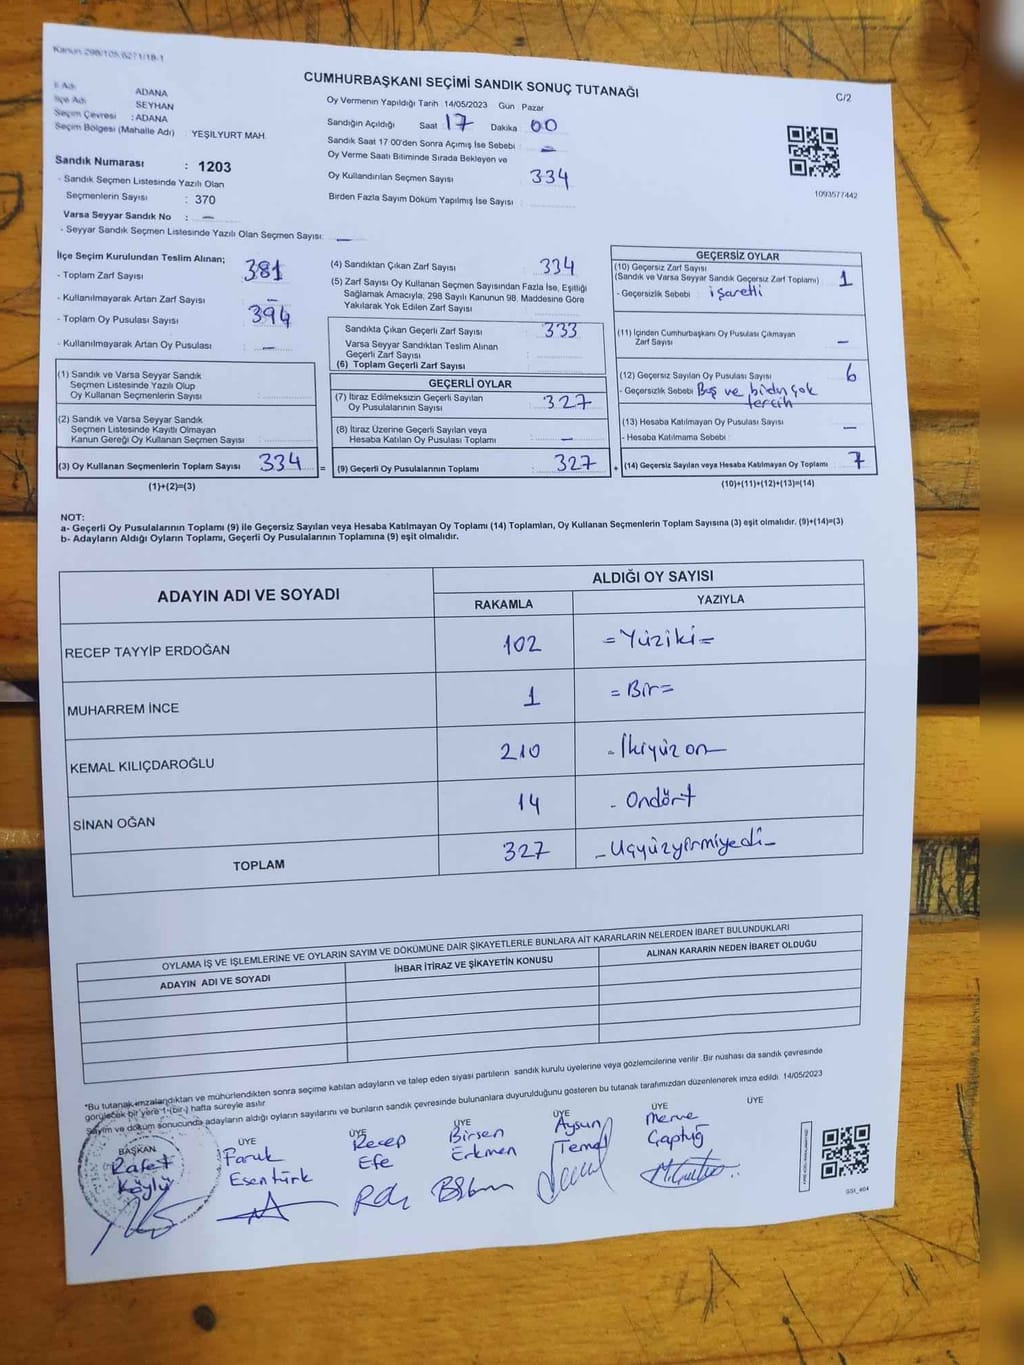 Kanun:298/105,6271/18-1
CUMHURBAŞKANI SEÇİMİ SANDIK SONUÇ TUTANAĞI
C/2
İl Adı ADANA
İlçe Adı SEYHAN
Seçim Çevresi : ADANA
Seçim Bölgesi (Mahalle Adı) : YEŞİLYURT MAH.
Sandık Numarası : 1203
- Sandık Seçmen Listesinde Yazılı Olan
Seçmenlerin Sayısı : 370
Varsa Seyyar Sandık No : –
- Seyyar Sandık Seçmen Listesinde Yazılı Olan Seçmen Sayısı: –
Oy Vermenin Yapıldığı Tarih 14/05/2023 Gün : Pazar
Sandığın Açıldığı Saat 17 Dakika 00
Sandık Saat 17:00'den Sonra Açımış İse Sebebi : –
Oy Verme Saati Bitiminde Sırada Bekleyen ve
Oy Kullandırılan Seçmen Sayısı : 334
Birden Fazla Sayım Döküm Yapılmış İse Sayısı :
1093577442
İlçe Seçim Kurulundan Teslim Alınan;
- Toplam Zarf Sayısı 381
- Kullanılmayarak Artan Zarf Sayısı –
- Toplam Oy Pusulası Sayısı 394
- Kullanılmayarak Artan Oy Pusulası : –
(1) Sandık ve Varsa Seyyar Sandık
Seçmen Listesinde Yazılı Olup
Oy Kullanan Seçmenlerin Sayısı :
(2) Sandık ve Varsa Seyyar Sandık
Seçmen Listesinde Kayıtlı Olmayan
Kanun Gereği Oy Kullanan Seçmen Sayısı :
(3) Oy Kullanan Seçmenlerin Toplam Sayısı : 334 =
(1)+(2)=(3)
(4) Sandıktan Çıkan Zarf Sayısı : 334
(5) Zarf Sayısı Oy Kullanan Seçmen Sayısından Fazla İse, Eşitliği
Sağlamak Amacıyla, 298 Sayılı Kanunun 98. Maddesine Göre
Yakılarak Yok Edilen Zarf Sayısı :
Sandıkta Çıkan Geçerli Zarf Sayısı : 333
Varsa Seyyar Sandıktan Teslim Alınan
Geçerli Zarf Sayısı :
(6) Toplam Geçerli Zarf Sayısı :
GEÇERLİ OYLAR
(7) İtiraz Edilmeksizin Geçerli Sayılan
Oy Pusulalarının Sayısı : 327
(8) İtiraz Üzerine Geçerli Sayılan veya
Hesaba Katılan Oy Pusulası Toplamı : –
(9) Geçerli Oy Pusulalarının Toplamı : 327 +
GEÇERSİZ OYLAR
(10) Geçersiz Zarf Sayısı
(Sandık ve Varsa Seyyar Sandık Geçersiz Zarf Toplamı) : 1
- Geçersizlik Sebebi : işaretli
(11) İçinden Cumhurbaşkanı Oy Pusulası Çıkmayan
Zarf Sayısı : –
(12) Geçersiz Sayılan Oy Pusulası Sayısı : 6
- Geçersizlik Sebebi : Boş ve birden çok
tercih
(13) Hesaba Katılmayan Oy Pusulası Sayısı : –
- Hesaba Katılmama Sebebi :
(14) Geçersiz Sayılan veya Hesaba Katılmayan Oy Toplamı : 7
(10)+(11)+(12)+(13)=(14)
NOT:
a- Geçerli Oy Pusulalarının Toplamı (9) ile Geçersiz Sayılan veya Hesaba Katılmayan Oy Toplamı (14) Toplamları, Oy Kullanan Seçmenlerin Toplam Sayısına (3) eşit olmalıdır. (9)+(14)=(3)
b- Adayların Aldığı Oyların Toplamı, Geçerli Oy Pusulalarının Toplamına (9) eşit olmalıdır.
ADAYIN ADI VE SOYADI
ALDIĞI OY SAYISI
RAKAMLA YAZIYLA
RECEP TAYYİP ERDOĞAN 102 =Yüziki=
MUHARREM İNCE 1 =Bir=
KEMAL KILIÇDAROĞLU 210 -İkiyüzon-
SİNAN OĞAN 14 - Ondört
TOPLAM 327 -Üçyüzyirmiyedi-
OYLAMA İŞ VE İŞLEMLERİNE VE OYLARIN SAYIM VE DÖKÜMÜNE DAİR ŞİKAYETLERLE BUNLARA AİT KARARLARIN NELERDEN İBARET BULUNDUKLARI
ADAYIN ADI VE SOYADI İHBAR İTİRAZ VE ŞİKAYETİN KONUSU ALINAN KARARIN NEDEN İBARET OLDUĞU
*Bu tutanak imzalandıktan ve mühürlendikten sonra seçime katılan adayların ve talep eden siyasi partilerin sandık kurulu üyelerine veya gözlemcilerine verilir. Bir nüshası da sandık çevresinde
görülecek bir yere 1 (bir) hafta süreyle asılır.
Sayım ve döküm sonucunda adayların aldığı oyların sayılarını ve bunların sandık çevresinde bulunanlara duyurulduğunu gösteren bu tutanak tarafımızdan düzenlenerek imza edildi. 14/05/2023
BAŞKAN ÜYE ÜYE ÜYE ÜYE ÜYE ÜYE
Rafet Faruk Recep Birsen Aysun Merve
Köylü Esentürk Efe Erkmen Temel Gaptuğ